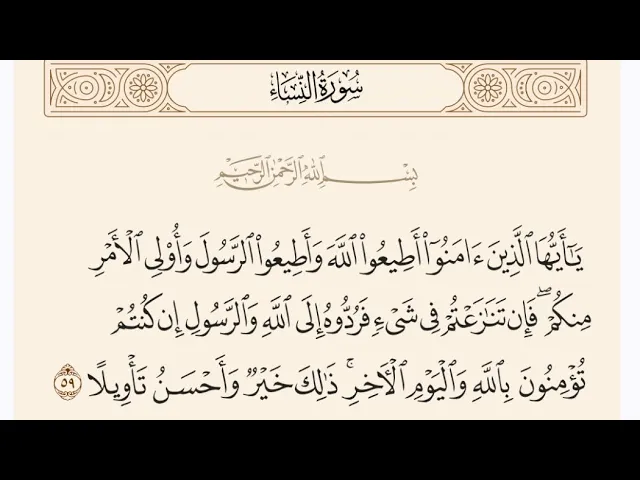 سُورَةُ النِّسَاءِ
بِسْمِ اللَّهِ الرَّحْمَٰنِ الرَّحِيمِ
يَٰٓأَيُّهَا ٱلَّذِينَ ءَامَنُوٓا۟ أَطِيعُوا۟ ٱللَّهَ وَأَطِيعُوا۟ ٱلرَّسُولَ وَأُو۟لِى ٱلْأَمْرِ
مِنكُمْ ۖ فَإِن تَنَٰزَعْتُمْ فِى شَىْءٍ فَرُدُّوهُ إِلَى ٱللَّهِ وَٱلرَّسُولِ إِن كُنتُمْ
تُؤْمِنُونَ بِٱللَّهِ وَٱلْيَوْمِ ٱلْءَاخِرِ ۚ ذَٰلِكَ خَيْرٌ وَأَحْسَنُ تَأْوِيلًا ٥٩